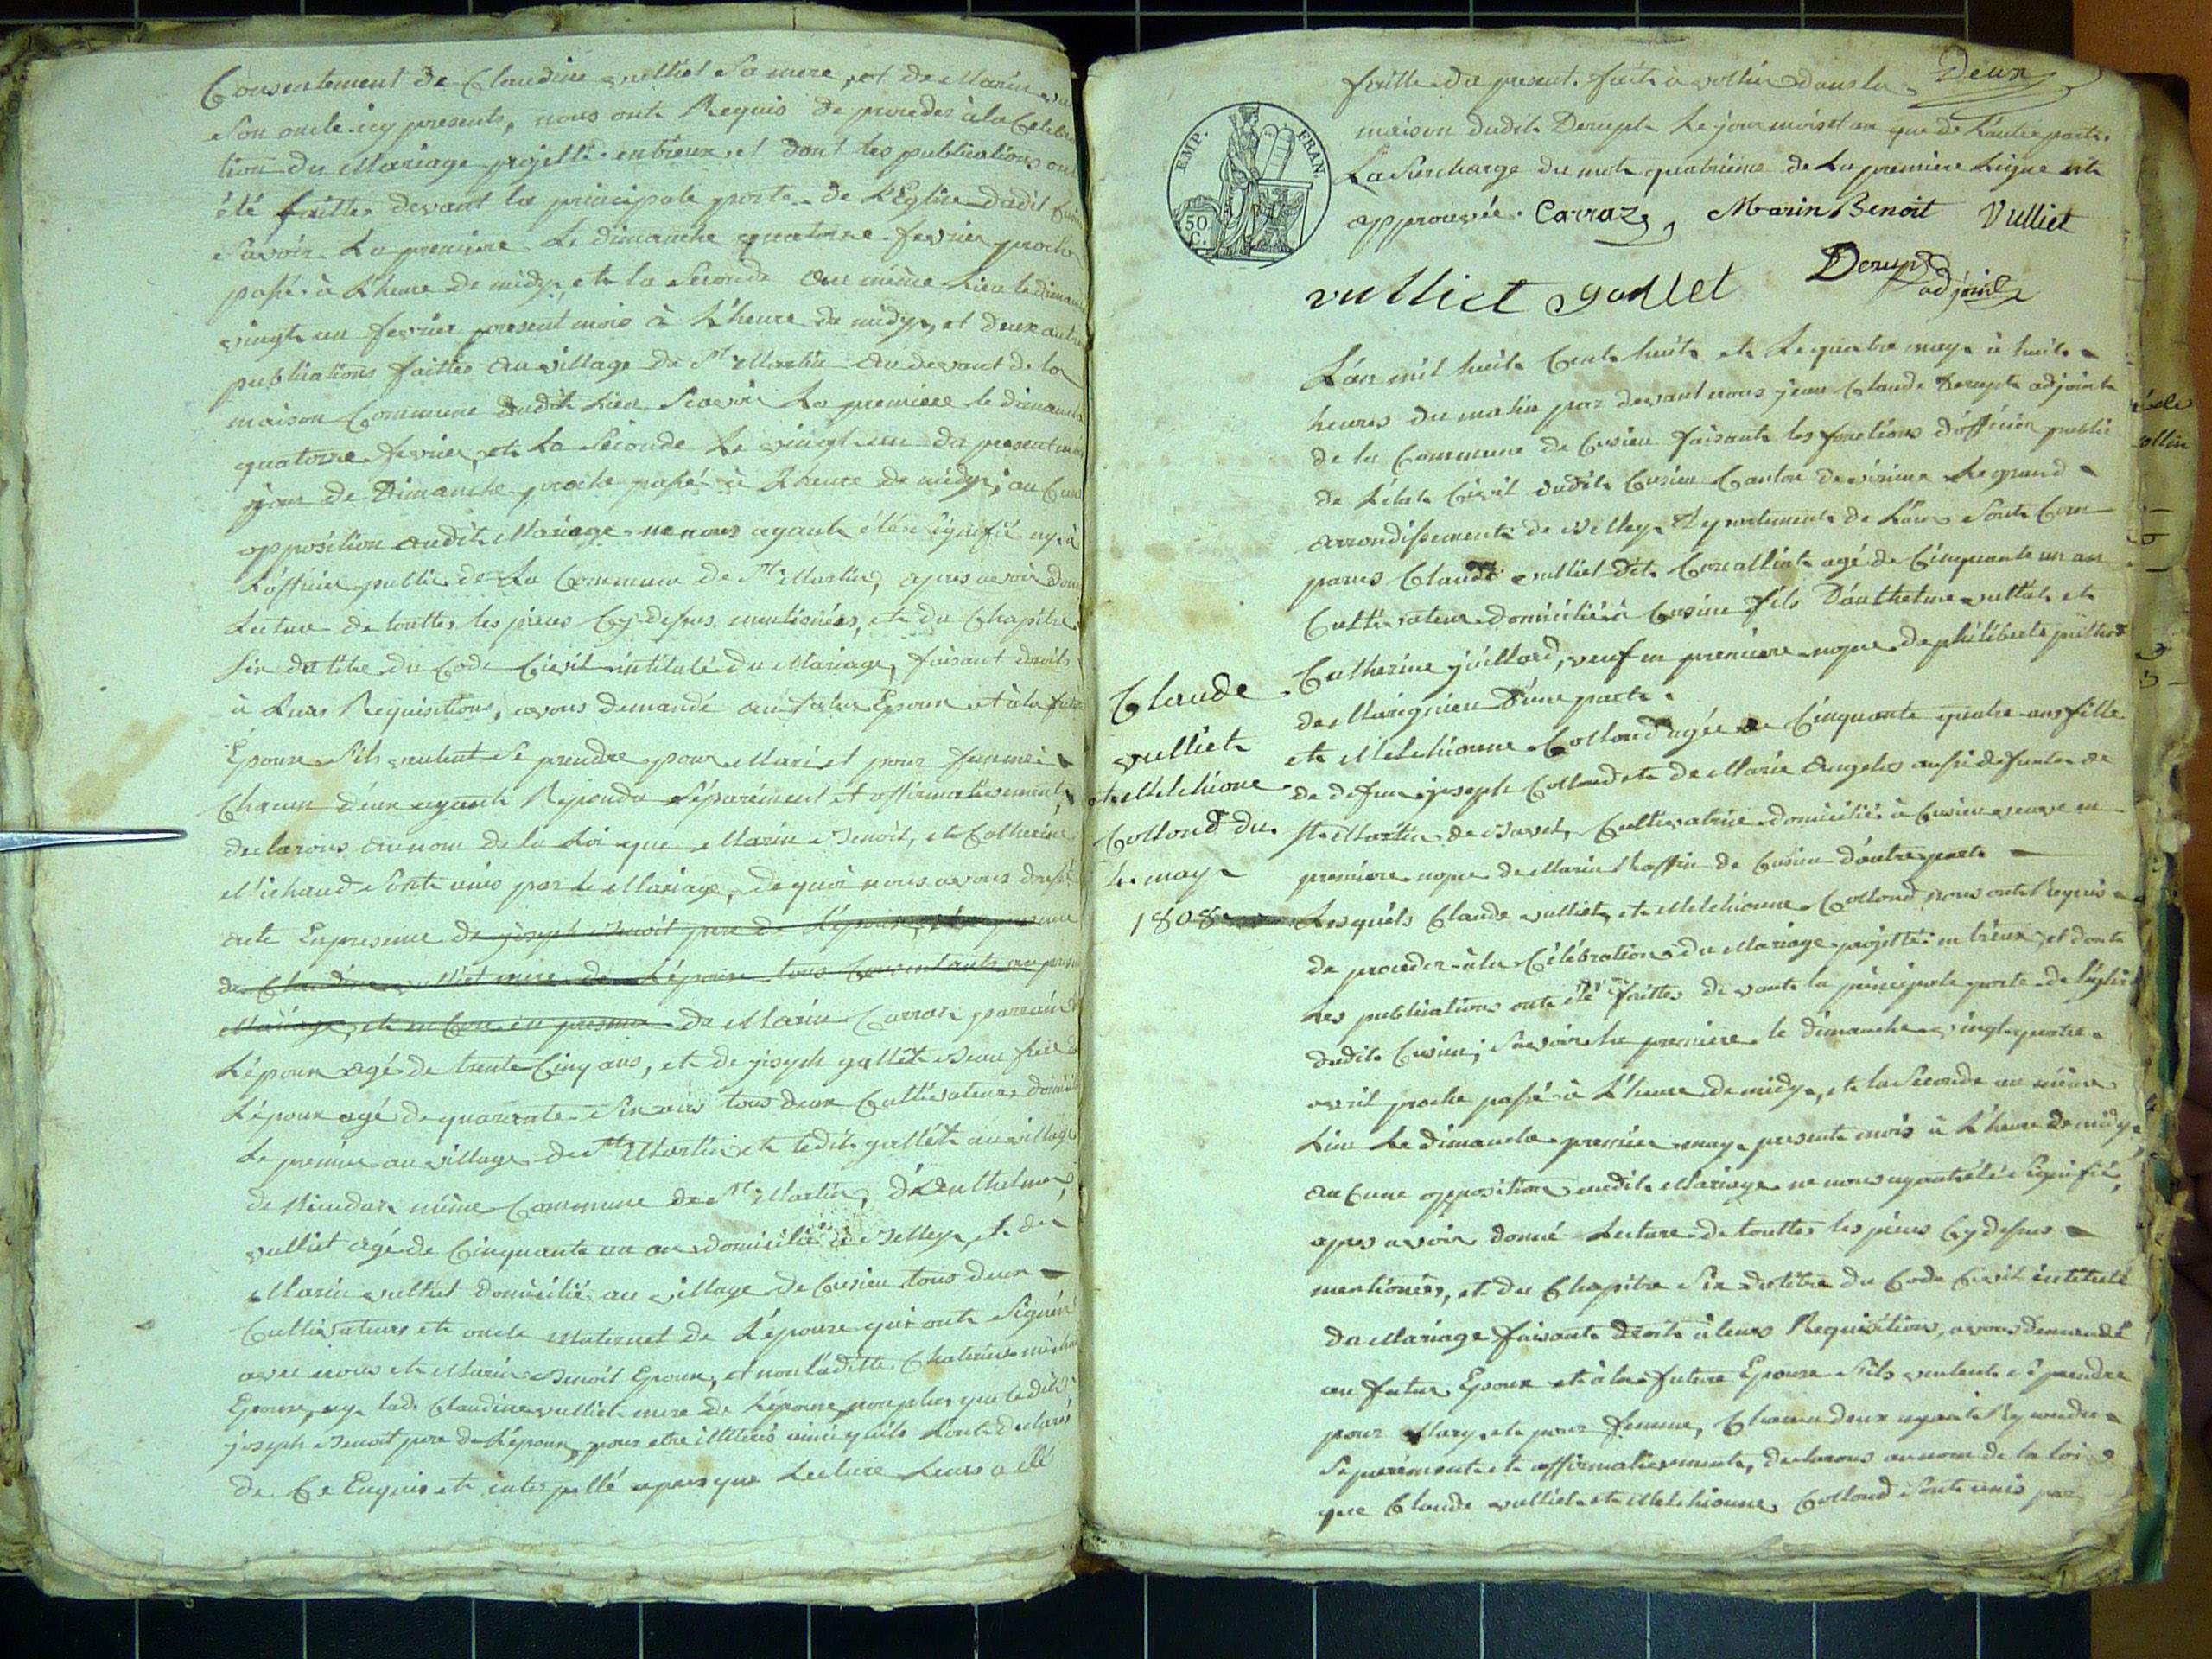 Consentement de Claudine vulliet Sa mere, et de Marin vu
Son oncle icy presents, nous ont Requis de proceder à la Celebra
tion du Mariage projetté entreux et dont les publications ont
été faittes devant la principale porte de L'Eglise dudit
Savoir La premiere Le dimanche quatorze fevrier proche
passé à L'heure de midy, et la Seconde au même Lieu le dimanche
vingt un fevrier present mois à L'heure de midy, et deux autre
publications faittes au village de St Martin au devant de la
maison Commune dudit Lieu Scavoir La premiere le dimanche
quatorze fevrier, et La Seconde Le vingt un du present mois
jour de Dimanche proche passé à L'heure de midy; aucune
opposition audit Mariage ne nous ayant été signifié ny à
L'officier public de La Commune de St Martin, apres avoir donné
Lecture de touttes les pieces Cy-dessus mentionées, et du Chapitre
Six du titre du Code Civil intitulé du Mariage, faisant droit
à Leurs Requisitions, avons demandé au futur Epoux et à la future
Épouse S'ils veulent Se prendre pour Mari et pour femme;
Chacun d'eux ayant Repondu Séparément et affirmativement
declarons au nom de la Loi que Marin Benoit, et Catherine
Michaud Sont unis par le Mariage, de quoi nous avons dressé
acte En presence de joseph Benoit pere de L'epoux,
de Claudine vulliet mere de L'épouse tous Consentants au present
Mariage, et encore en presence de Marin Carraz parrain de
L'époux agé de trente Cinq ans, et de joseph gallet Beau frere de
L'époux agé de quarante Six ans tous deux Cultivateurs domiciliés
Le premier au village de St Martin et ledit gallet au village
de même Commune de St Martin, d'Anthelme
vulliet agé de Cinquante un an domicilié à Belley, et de
Marin vulliet domicilié au village de Cusieu tous deux
Cultivateurs et oncle Maternel de L'épouse qui ont Signés
avec nous et Marin Benoit Epoux, et non laditte Chaterine michaud
Epouse, ny lad. Claudine vulliet mere de L'épouse, non plus que ledit
joseph Benoit pere de L'époux, pour etre illiterés ainsi qu'ils l'ont declaré
de Ce Enquis et interpellé apres que Lecture Leurs a été
faitte du present. fait à vollin dans la Deux
maison dudit Derupt Le jour mois et an que de L'autre part.
La Surcharge du mot quatrieme de La premiere Ligne est
approuvée. Carraz, Marin Benoit Vulliet
vulliet gallet Derupt
adjoint
EMP. FRAN.
50
C.
L'an mil huit Cent huit et Le quatre may à huit
heures du matin par devant nous jean Claude Derupt adjoint
de la Commune de Cusieu faisant les fonctions d'officier public
de L'état Civil dudit Cusieu Canton de virieu Le grand
arrondissement de Belley Departement de L'ain Sont Com
parus Claude vulliet dit agé de Cinquante un an
Cultivateur domicilié à Cusieu fils D'anthelme vulliet et
Catherine juillard, veuf en premiere nopce de philiberte
de Marignieu D'une part.
et Melchionne Collond agée de Cinquante quatre ans fille
de defunt joseph Collond et de Marie Angelos aussi defunte de
St Martin de Bavel, Cultivatrice domiciliée à Cusieu veuve en
premiere nopce de Marin Chaffin de Cusieu d'autre part
Lesquels Claude vulliet, et Melchionne Collond nous ont Requis
de proceder à la Célébration du Mariage projetté entreux et dont
Les publications ont été faittes devant la principale porte de l'église
dudit Cusieu; Savoir la premiere le dimanche vingt quatre
avril proche passé à L'heure de midy, et la Seconde au même
Lieu Le dimanche premier may present mois à L'heure de midy,
aucune opposition audit Mariage ne nous ayant été Signifié,
apres avoir donné Lecture de touttes les pieces Cy dessus
mentionées, et du Chapitre Six du titre du Code Civil intitulé
du Mariage faisant droit à leurs Requisitions, avons demandé
au futur Epoux et à la future Epouse S'ils veulent Se prendre
pour Mary et pour femme, Chacun deux ayant Repondu
Séparément et affirmativement, declarons au nom de la loi
que Claude vulliet et Melchionne Collond Sont unis par
Claude
vulliet
et Melchione
Collond du
4 may
1808